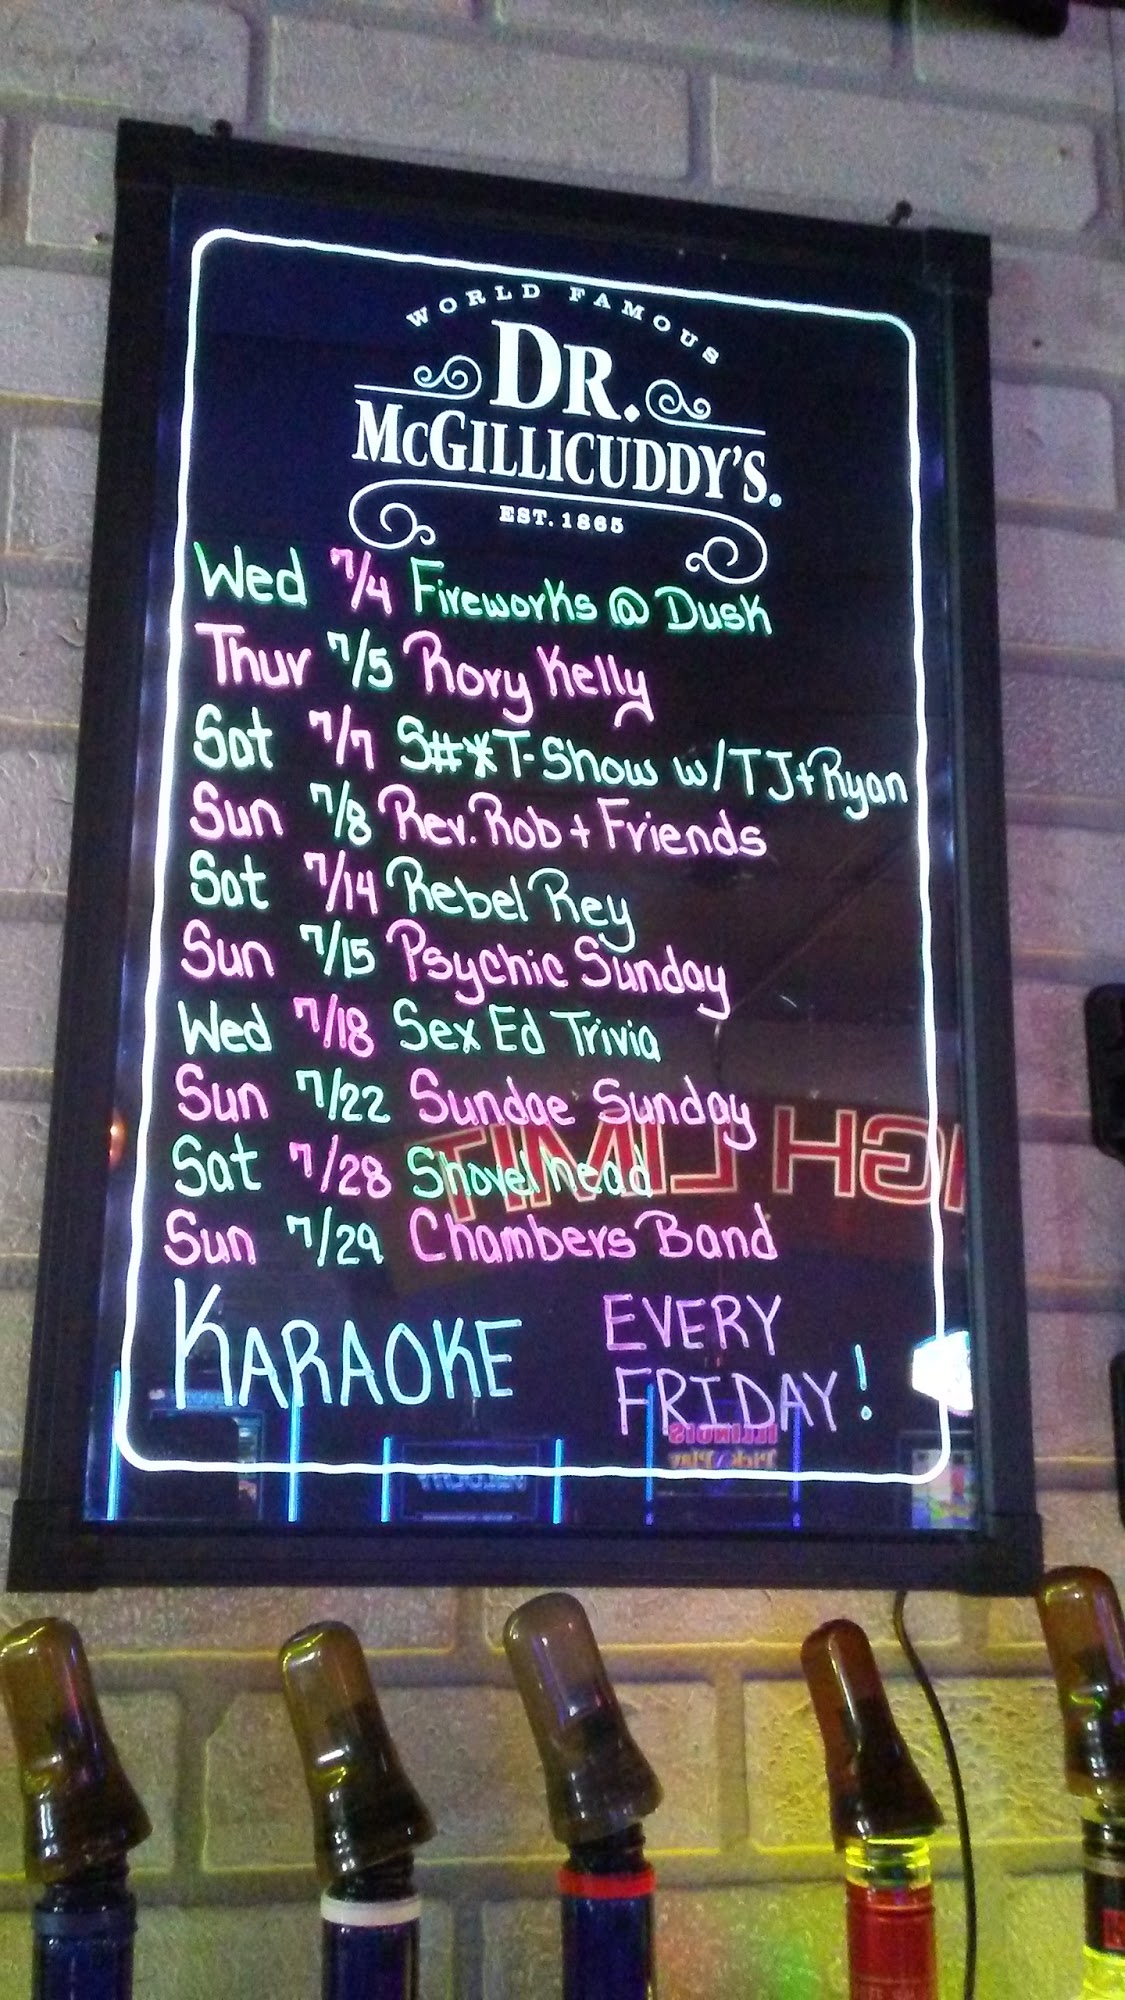 WORLD FAMOUS
DR.
MCGILLICUDDY'S®
EST. 1865
Wed 7/4 Fireworks @ Dusk
Thur 7/5 Rory Kelly
Sat 7/7 S#*T-Show w/TJ+Ryan
Sun 7/8 Rev. Rob + Friends
Sat 7/14 Rebel Rey
Sun 7/15 Psychic Sunday
Wed 7/18 Sex Ed Trivia
Sun 7/22 Sundae Sunday
Sat 7/28 Shovelhead
Sun 7/29 Chambers Band
KARAOKE EVERY
FRIDAY!
GH LIMIT
ILLINOIS
Pick & Play